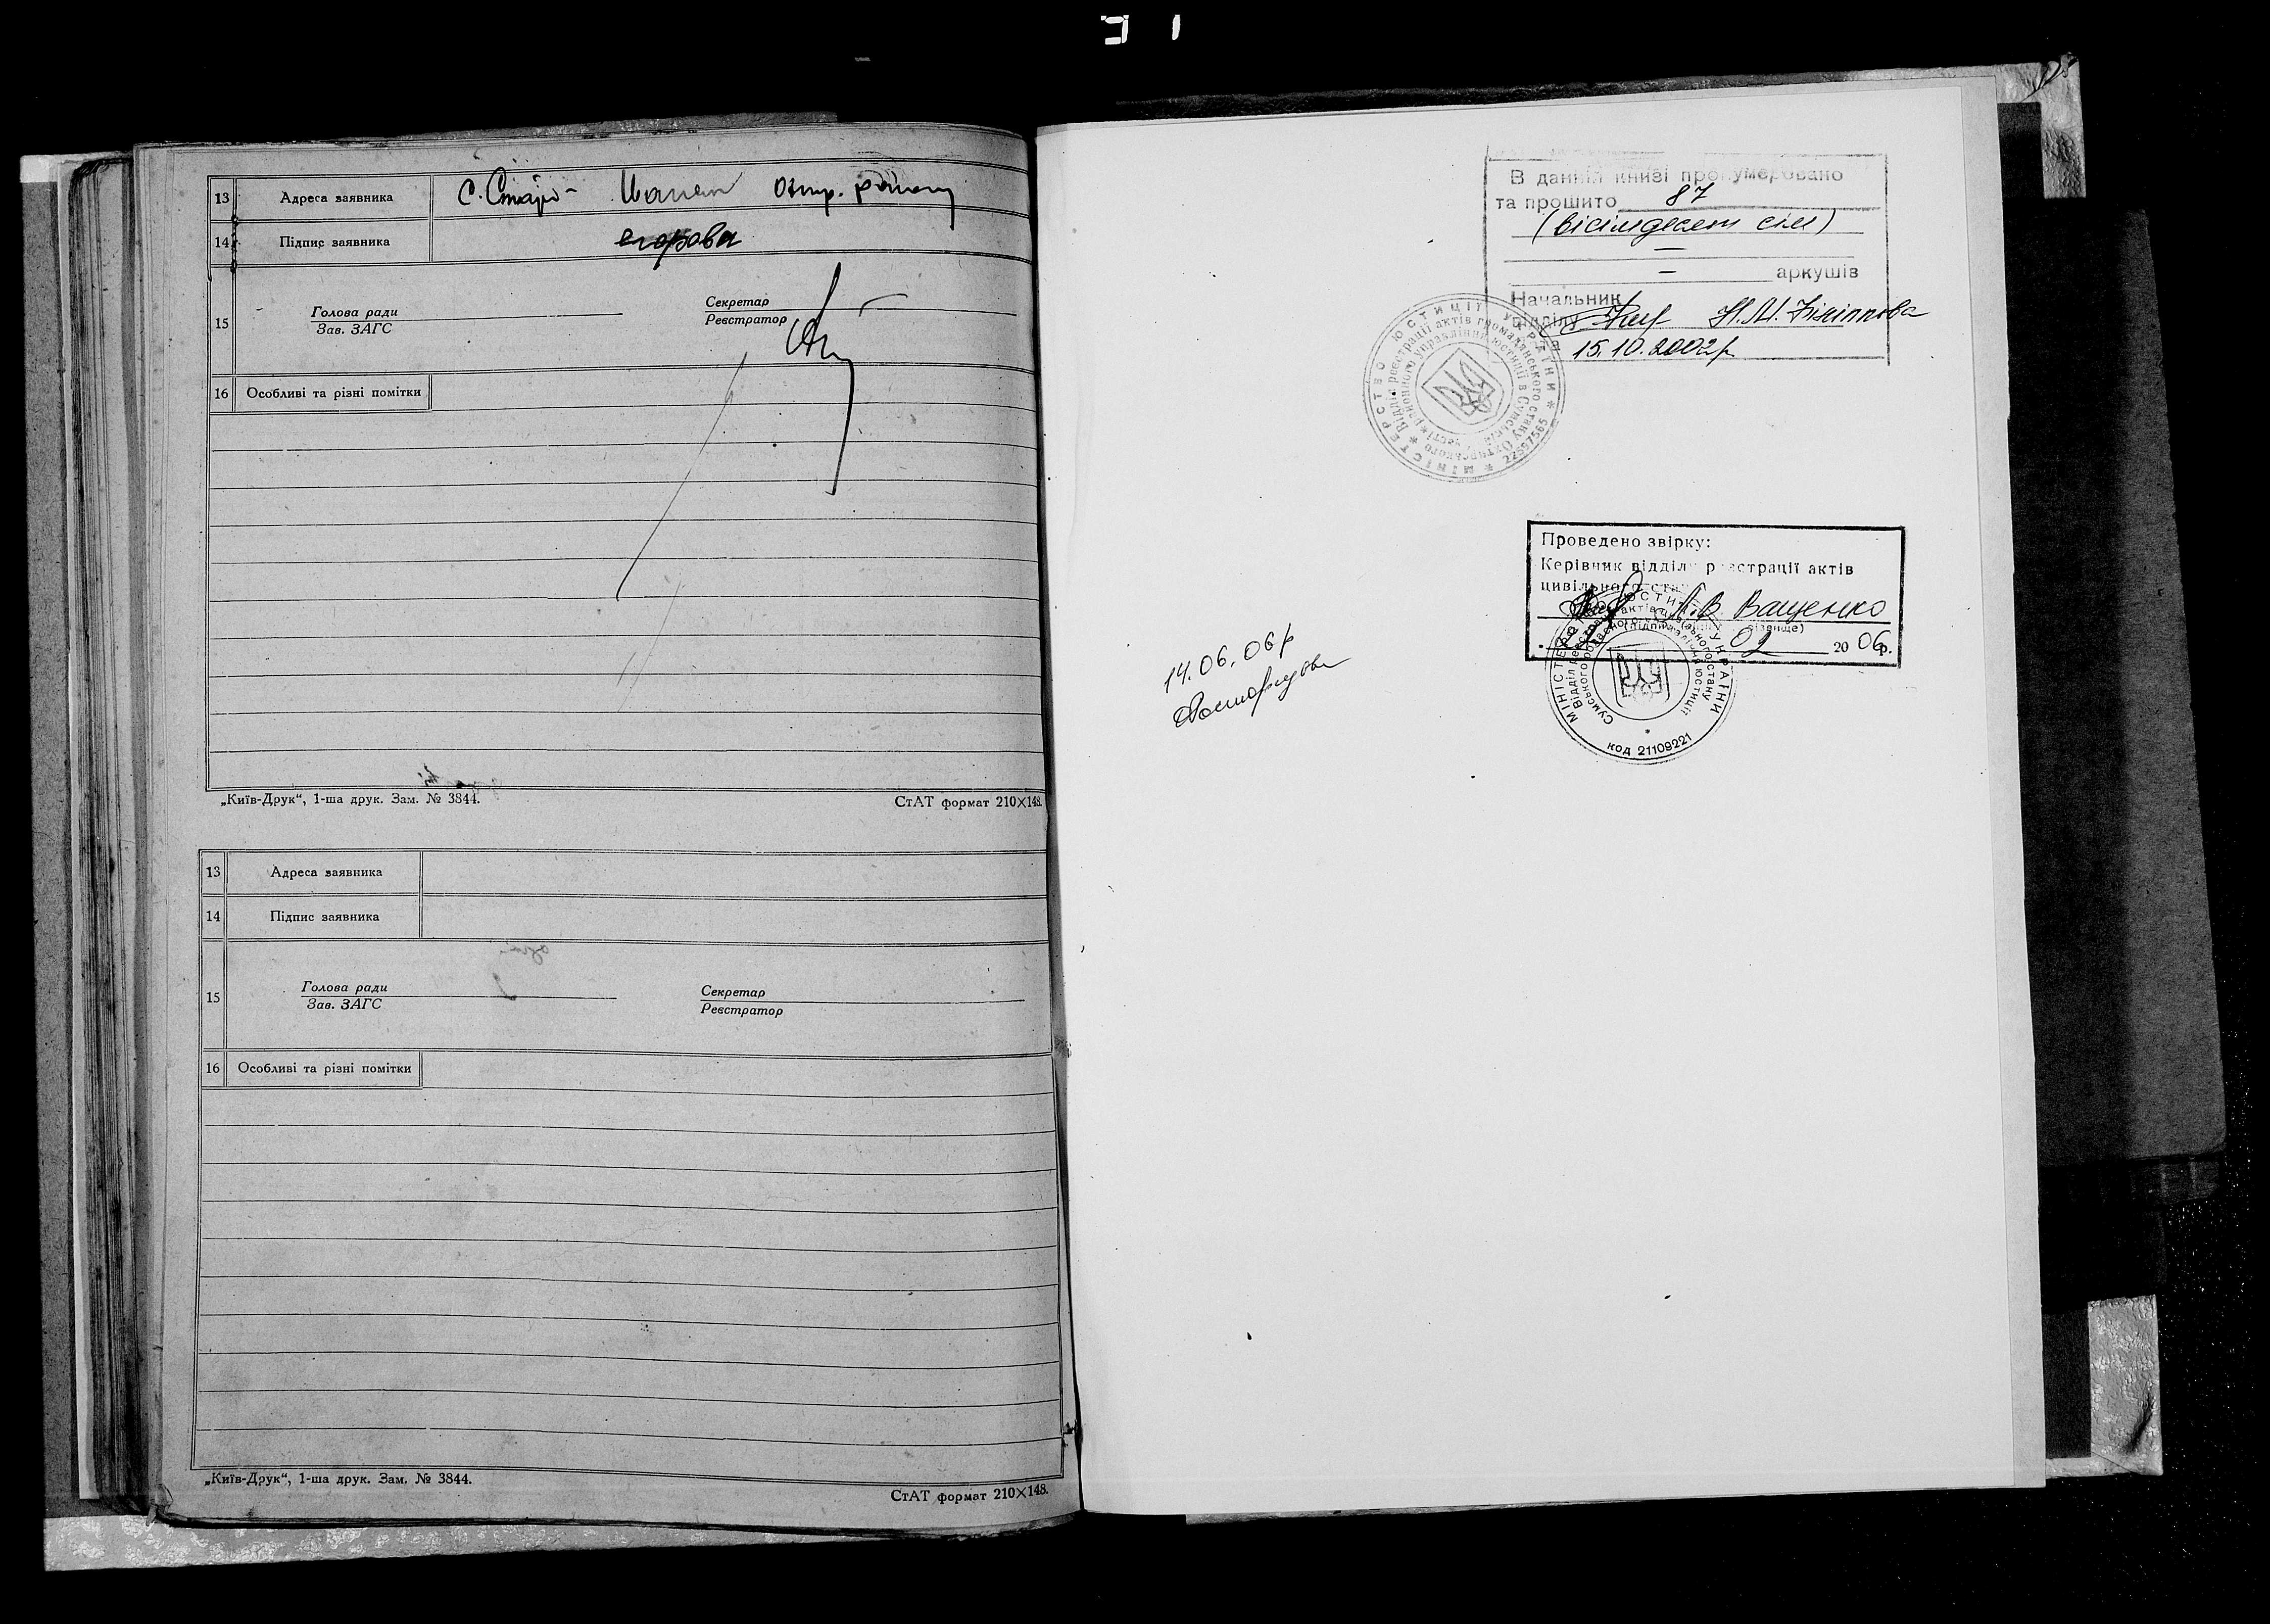 13 Адреса заявника С. Старо- Иванов Охтир. району
14 Підпис заявника Егорова
15 Голова ради Секретар
Зав. ЗАГС Реєстратор
16 Особливі та різні помітки
„Київ-Друк“, 1-ша друк. Зам. № 3844. СтАТ формат 210×148.
13 Адреса заявника
14 Підпис заявника
15 Голова ради Секретар
Зав. ЗАГС Реєстратор
16 Особливі та різні помітки
„Київ-Друк“, 1-ша друк. Зам. № 3844. СтАТ формат 210×148.
В данній книзі пронумеровано
та прошито 87
(вісімдесят сім)
аркушів
Начальник
відділу Н.М. Філіппова
15.10.2002р
МІНІСТЕРСТВО ЮСТИЦІЇ УКРАЇНИ
Відділ реєстрації актів громадянського стану Охтирського
районного управління юстиції в Сумській області
22597565
Проведено звірку:
Керівник відділу реєстрації актів
цивільного стану
Л.В. Ващенко
(підпис) (прізвище)
02 2006р.
МІНІСТЕРСТВО ЮСТИЦІЇ УКРАЇНИ
Відділ реєстрації актів цивільного стану
Сумського обласного управління юстиції
код 21109221
14.06.06р